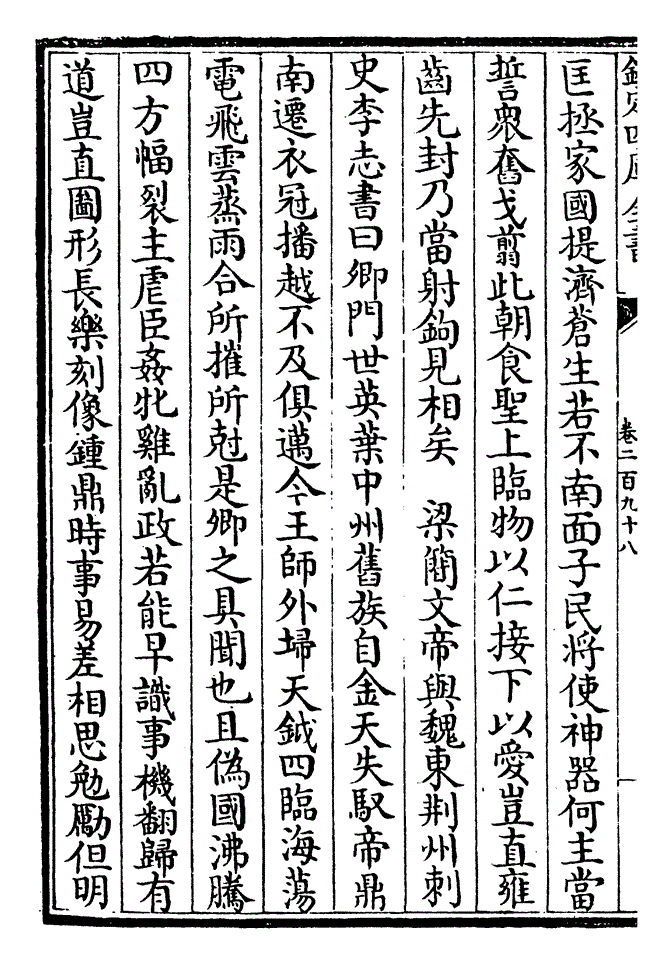 欽定四庫全書
卷二百九十八
匡拯家國提濟蒼生若不南面子民將使神器何主當
誓眾奮戈翦此朝食聖上臨物以仁接下以愛豈直雍
齒先封乃當射鉤見相矣　梁簡文帝與魏東荆州刺
史李志書曰卿門世英葉中州舊族自金天失馭帝鼎
南遷衣冠播越不及俱邁今王師外埽天鉞四臨海蕩
電飛雲蒸雨合所摧所尅是卿之具聞也且偽國沸騰
四方幅裂主虐臣姦牝雞亂政若能早識事機翻歸有
道豈直圖形長樂刻像鍾鼎時事易差相思勉勵但明